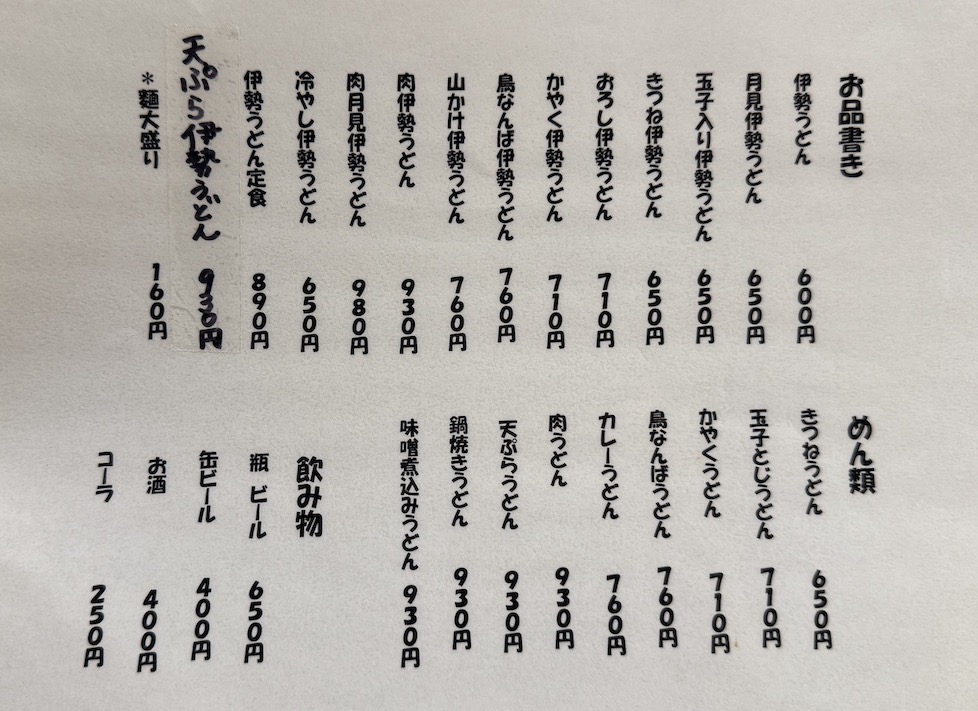 お品書き
伊勢うどん 600円
月見伊勢うどん 650円
玉子入り伊勢うどん 650円
きつね伊勢うどん 650円
おろし伊勢うどん 710円
かやく伊勢うどん 710円
鳥なんば伊勢うどん 760円
山かけ伊勢うどん 760円
肉伊勢うどん 930円
肉月見伊勢うどん 980円
冷やし伊勢うどん 650円
伊勢うどん定食 890円
天ぷら伊勢うどん 930円
*麺大盛り 160円
めん類
きつねうどん 650円
玉子とじうどん 710円
かやくうどん 710円
鳥なんばうどん 760円
カレーうどん 760円
肉うどん 930円
天ぷらうどん 930円
鍋焼きうどん 930円
味噌煮込みうどん 930円
飲み物
瓶 ビール 650円
缶ビール 400円
お酒 400円
コーラ 250円